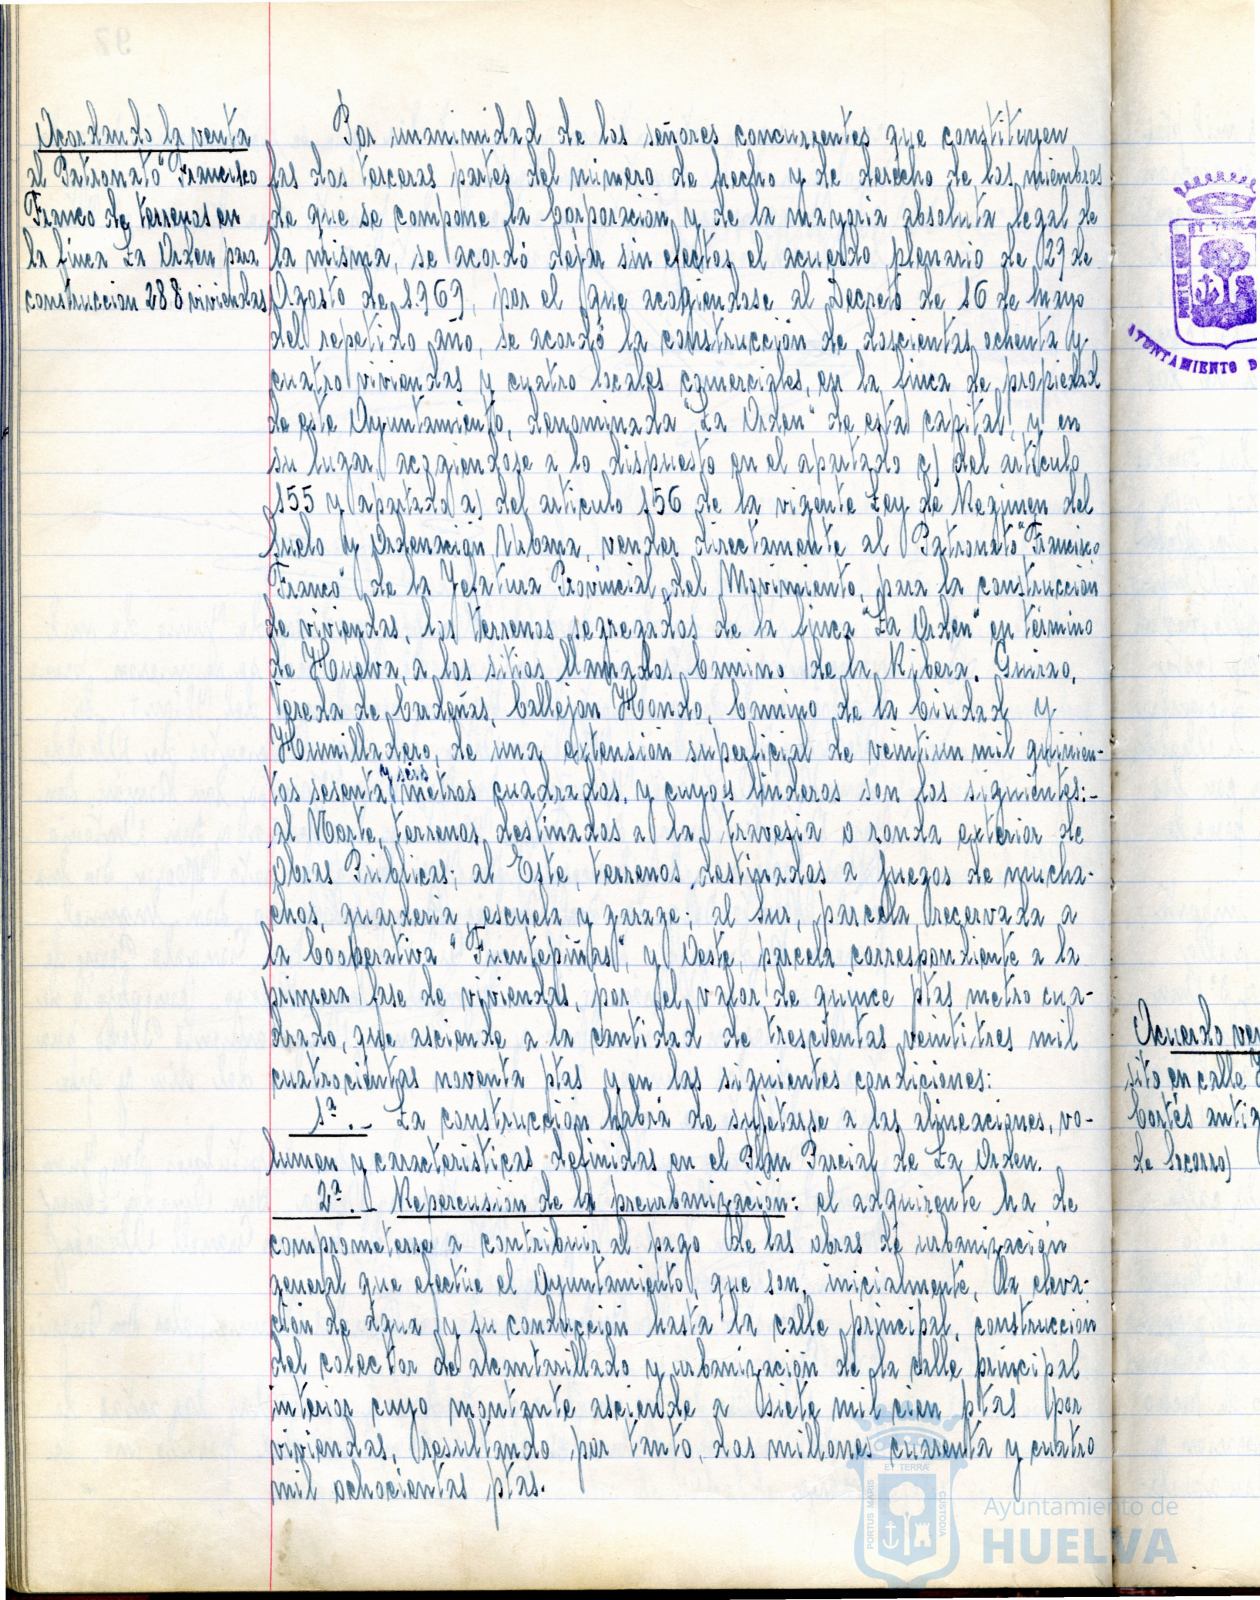 97
Acordando la venta
al Patronato "Francisco
Franco de terrenos en
la finca La Orden para
construccion 288 viviendas
Por unanimidad de los señores concurrentes que constituyen
las dos terceras partes del número de hecho y de derecho de los miembros
de que se compone la Corporación, y de la mayoria absoluta legal de
la misma, se acordó dejar sin efectos el acuerdo plenario de 29 de
Agosto de 1969, por el que acogiendose al Decreto de 16 de Mayo
del repetido año, se acordó la construcción de doscientas ochenta y
cuatro viviendas y cuatro locales comerciales, en la finca de propiedad
de este Ayuntamiento, denominada "La Orden" de esta capital, y en
su lugar, acogiendose a lo dispuesto en el apartado c) del articulo
155 y apartado a) del articulo 156 de la vigente Ley de Regimen del
Suelo y Ordenación Urbana, vender directamente al Patronato "Francisco
Franco" de la Jefatura Provincial del Movimiento, para la construccion
de viviendas, los terrenos segregados de la finca "La Orden" en término
de Huelva, a los sitios llamados Camino de la Ribera. Guirao,
Vereda de Cardeñas, Callejon Hondo, Camino de la Ciudad y
Humilladero, de una extensión superficial de veintiun mil quinien-
tos sesenta y seis metros cuadrados, y cuyos linderos son los siguientes:-
al Norte, terrenos destinados a la travesia o ronda exterior de
Obras Públicas; al Este, terrenos destinados a juegos de mucha-
chos, guarderia, escuela y garage; al Sur, parcela recervada a
la Cooperativa "Fuentepiñas", y Oeste, parcela correspondiente a la
primera fase de viviendas, por el valor de quince ptas metro cua-
drado, que asciende a la cantidad de trescientas veintitres mil
cuatrocientas noventa ptas y en las siguientes condiciones:
1ª.- La construcción habrá de sujetarse a las alineaciones, vo-
lumen y caracteristicas definidas en el Plan Parcial de La Orden.
2ª.- Repercusión de la preurbanización: el adquirente ha de
comprometerse a contribuir al pago de las obras de urbanización
general que efectúe el Ayuntamiento, que son, inicialmente, la eleva-
ción de agua y su conducción hasta la calle principal, construccion
del colector de alcantarillado y urbanización de la calle principal
interior cuyo montante asciende a siete mil cien ptas por
viviendas, resultando por tanto, dos millones cuarenta y cuatro
mil ochocientas ptas.
AYUNTAMIENTO D
Acuerdo ven
sito en calle
Cortés antig
de Socorro)
PORTUS MARIS
ET TERRÆ
CUSTODIA
Ayuntamiento de
HUELVA